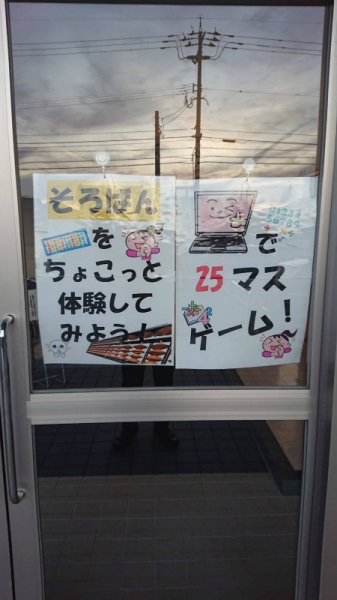 そろばん
を
ちょこっと
体験して
みよう！
で
25マス
ゲーム！